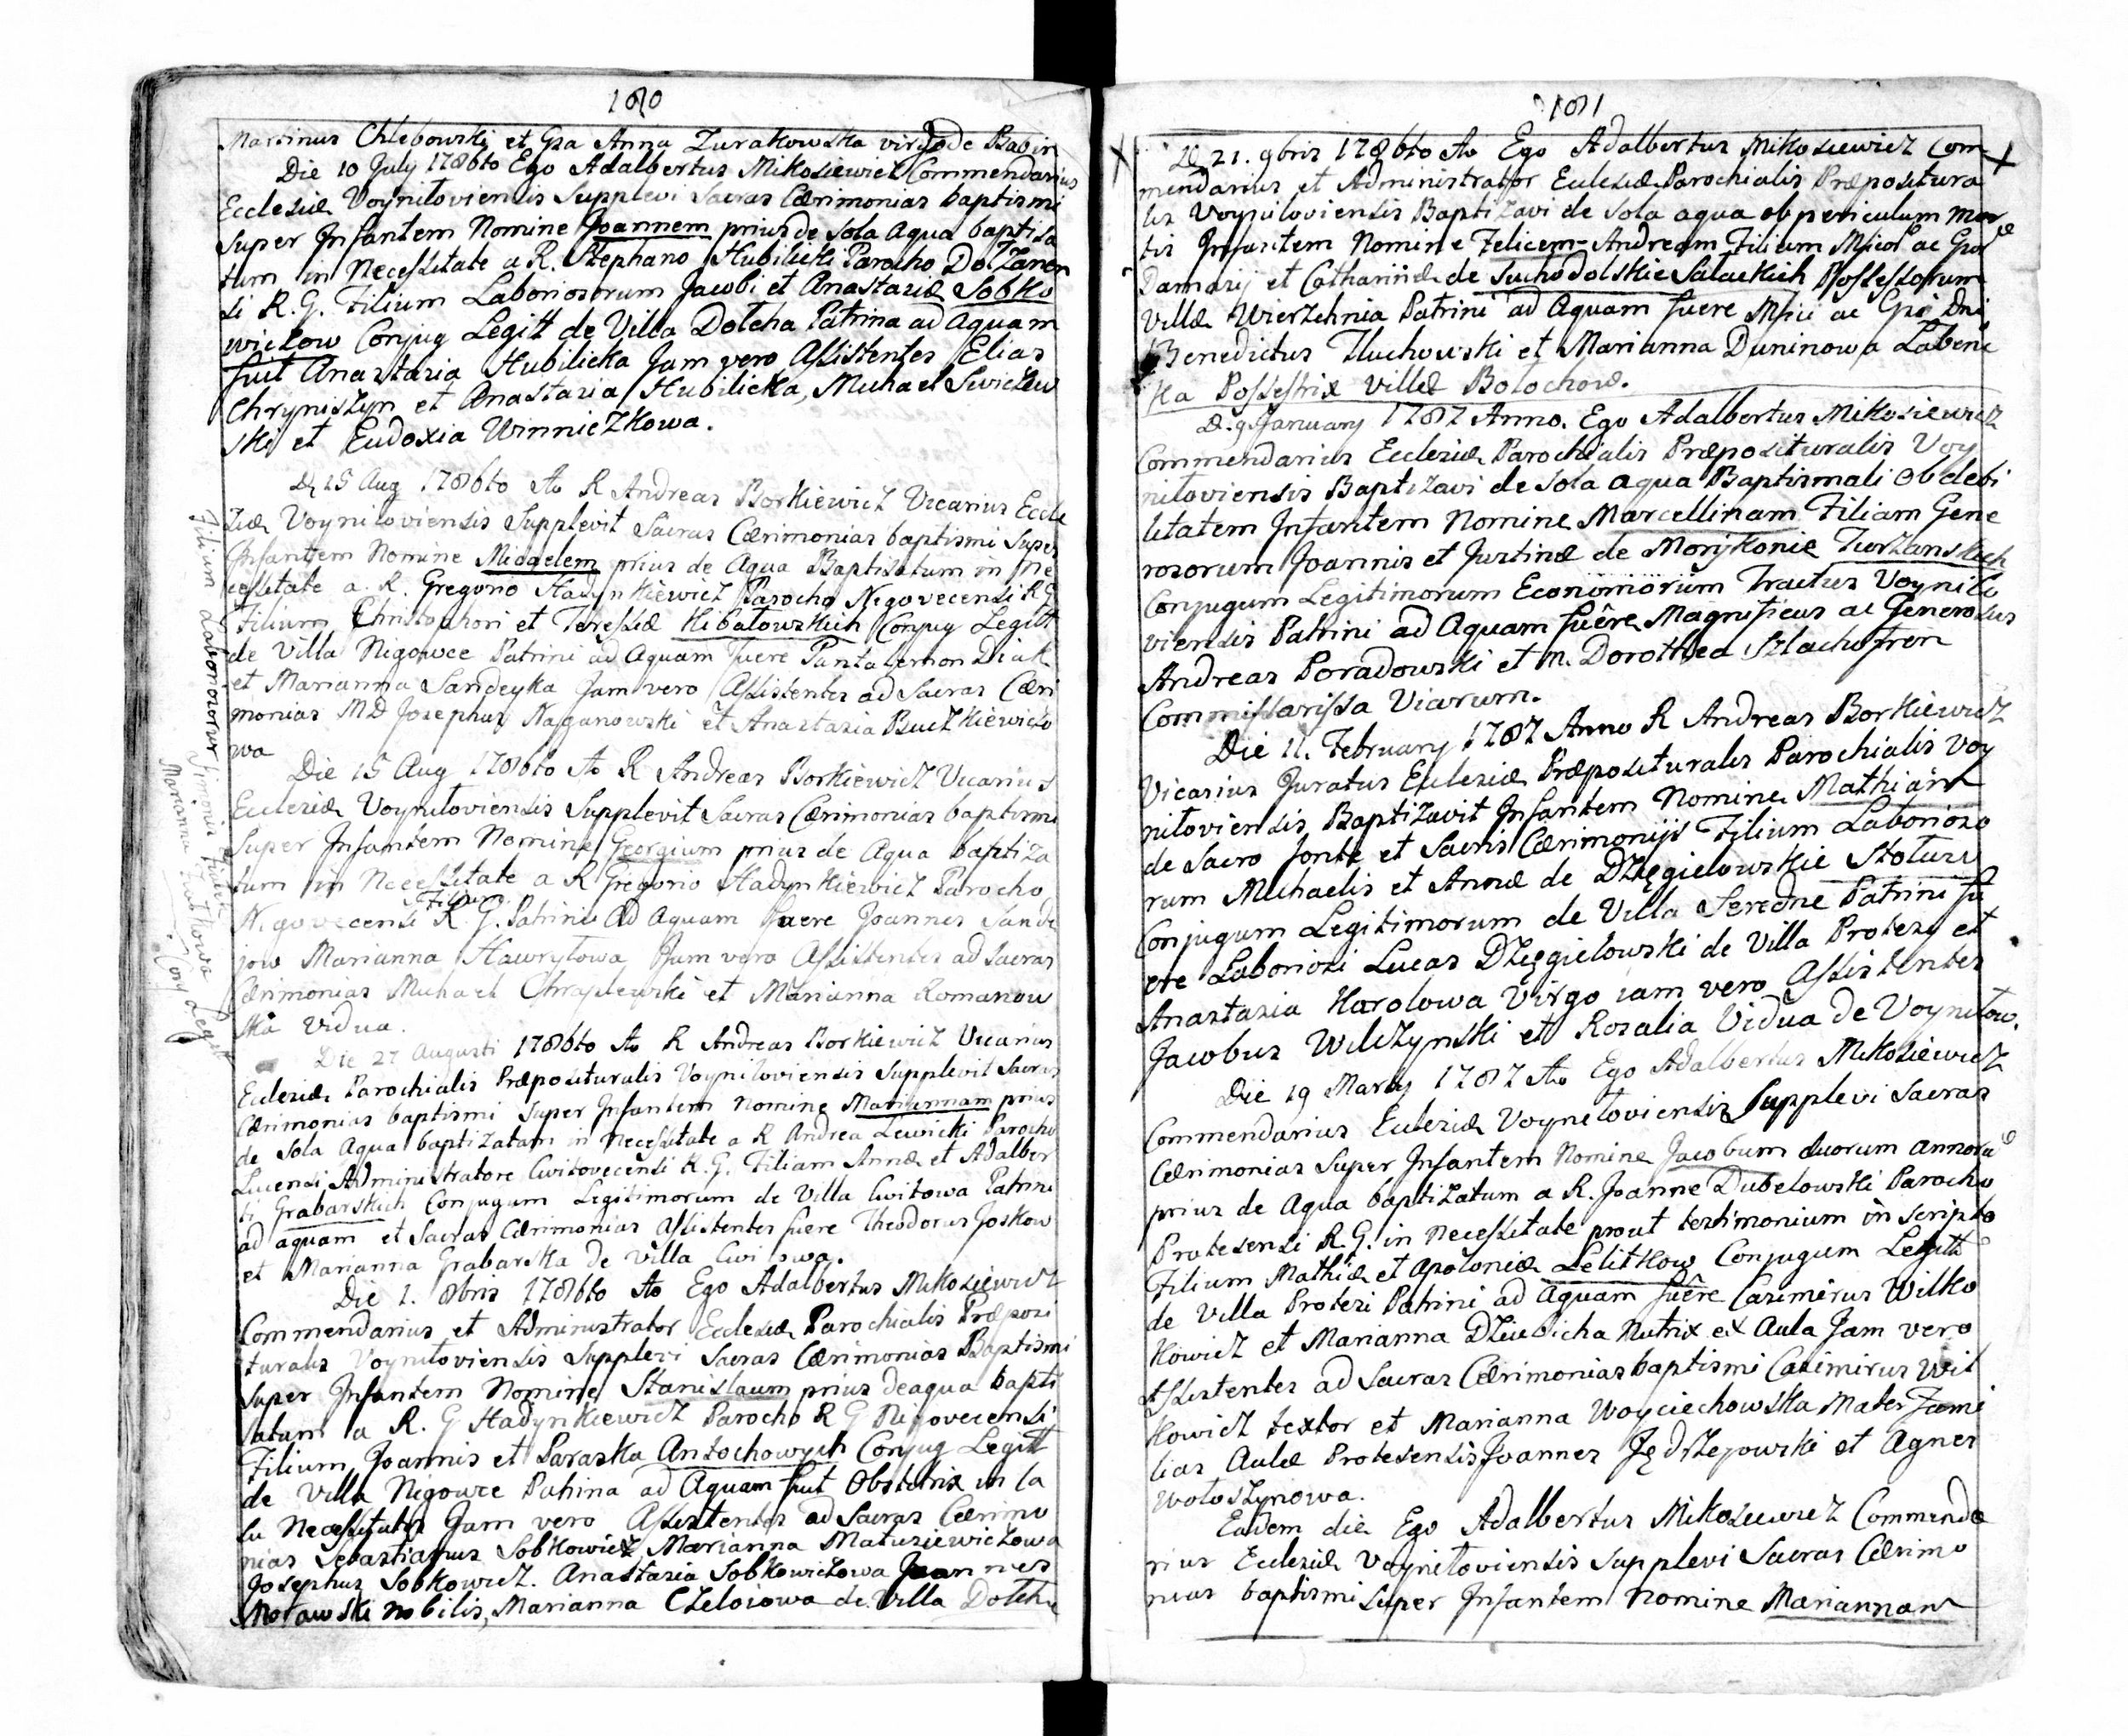 180
Marcinus Chlebowski et Gsa Anna Zurakowska virgo de Babin
Die 10 July 1786to Ego Adalbertus Mikosiewicz Commendarius
Ecclesiæ Voyniloviensis Supplevi Sacras Cærimonias baptismi
super Infantem Nomine Joannem prius de sola aqua baptisa
tum in Necessitate a R. Stephano Hubilicki Parocho Dolzanen
si R. G. Filium Laboriosorum Jacobi et Anastasiæ Sobko
wickow Conjug Legitt de Villa Dolcha Patrina ad Aquam
fuit Anastasia Hubilicka Jam vero Assistentes Elias
Chryniszyn et Anastasia Hubilicka, Michael Swiczew
ski et Eudoxia Winniczkowa.
D. 15 Aug 1786to Ao R Andreas Borkiewicz Vicarius Eccle
siæ Voyniloviensis Supplevit Sacras Cærimonias baptismi super
Infantem Nomine Micaelem prius de Aqua Baptisatum in Ne
cessitate a R. Gregorio Hadynkiewicz Parocho Nigovecensi R G
Filium Christophori et Teressiæ Kibalowskich Conjug Legitt
de Villa Nigowce Patrini ad Aquam fuere Pantalemon Diak
et Marianna Sandeyka Jam vero Assistentes ad Sacras Cæri
monias MD Josephus Naganowski et Anastasia Buczkiewiczo
wa
Die 15 Aug 1786to Ao R Andreas Borkiewicz Vicarius
Ecclesiæ Voyniloviensis Supplevit Sacras Cærimonias baptismi
Super Infantem Nomine Georgium prius de Aqua baptiza
tum in Necessitate a R Gregorio Hadynkiewicz Parocho
Filium
Nigovecensi R. G. Patrini ad Aquam fuere Joannes Sande
jow Marianna Hawrylowa Jam vero Assistentes ad Sacras
Cærimonias Michael Chraplewski et Marianna Romanow
ska vidua.
Filium Laboriosorum Simonis
Marianna
Conj Legitt
Die 27 Augusti 1786to Ao R Andreas Borkiewicz Vicarius
Ecclesiæ Parochialis Præposituralis Voyniloviensis Supplevit Sacras
Cærimonias baptismi super Infantem nomine Mariannam prius
de sola Aqua baptizatam in necessitate a R Andrea Lewicki Parocho
Lucensi Administratore Cwitovecensi R. G. Filiam Annæ et Adalber
ti Grabarskich Conjugum Legitimorum de Villa Cwitowa Patrini
ad aquam et Sacras Cærimonias assistentes fuere Theodorus Joskow
et Marianna Grabarska de villa Cwitowa.
Die 1. 8bris 1786to Ao Ego Adalbertus Mikosiewicz
Commendarius et Administrator Ecclesiæ Parochialis Præposi
turalis Voyniloviensis Supplevi Sacras Cærimonias Baptismi
super Infantem Nomine Stanislaum prius de aqua bapti
satum a R. G Hadynkiewicz Parocho R G Nigovecensi
Filium Joannis et Paraska Antochowych Conjug Legitt
de Villa Nigowce Patrina ad Aquam fuit Obstetrix in Ca
su Necessitatis Jam vero Assistentes ad Sacras Cærimo
nias Sebastianus Sobkowicz Marianna Matusiewiczowa
Josephus Sobkowicz. Anastasia Sobkowiczowa Joannes
Motawski nobilis, Marianna Czeloiowa de Villa Dolche
181
D 21. 9bris 1786to Ao Ego Adalbertus Mikosiewicz Com
mendarius et Administrator Ecclesiæ Parochialis Præpositura
lis Voyniloviensis Baptizavi de sola aqua ob periculum mor
tis Infantem Nomine Felicem-Andream Filium Mficor ac Gsor
Damasij et Catharinæ de Suchodolskie Salackich Possessorum
Villæ Wierzchnia Patrini ad Aquam fuere Mfici ac Gsi Dni
Benedictus Tluchowski et Marianna Duninowa Labenc
ka Possestrix villæ Bolochow.
D. 9 January 1787 Anno. Ego Adalbertus Mikosiewicz
Commendarius Ecclesiæ Parochialis Præposituralis Voy
niloviensis Baptizavi de sola aqua Baptismali ob debi
litatem Infantem Nomine Marcellinam Filiam Gene
rosorum Joannis et Justinæ de Morzkonie Turzanskich
Conjugum Legitimorum Economorum Tractus Voynilo
viensis Patrini ad Aquam fuêre Magnificus ac Generosus
Andreas Poradowski et M. Dorothea Szlachosren
Commissarissa Viarum.
Die 11. February 1787 Anno R Andreas Borkiewicz
Vicarius Juratus Ecclesiæ Præposituralis Parochialis Voy
niloviensis Baptizavit Infantem Nomine Mathiam
de sacro fonte et Sacris Cærimonijs Filium Laborioso
rum Michaelis et Annæ de Dzięgielowskie Stolusu
Conjugum Legitimorum de Villa Seredne Patrini fu
ere Laboriosi Lucas Dzięgielowski de Villa Protesy et
Anastasia Karolowa Virgo iam vero Assistentes
Jacobus Wilczynski et Rosalia Vidua de Voynilow.
Die 19 Marty 1787 Ao Ego Adalbertus Mikosiewicz
Commendarius Ecclesiæ Voyniloviensis Supplevi Sacras
Cærimonias super Infantem Nomine Jacobum duorum annoru
prius de Aqua baptizatum a R. Joanne Dubelowski Parocho
Protesensi R. G. in necessitate prout testimonium in scripto
Filium Mathiæ et Apoloniæ Lelitkow Conjugum Legitt
de Villa Protesi Patrini ad Aquam fuêre Casimirus Wilko
kowicz et Marianna Dziubicha Nutrix ex Aula Jam vero
Assistentes ad Sacras Cærimonias baptismi Casimirus Wil
kowicz textor et Marianna Woyciechowska Mater Fami
lias Aulæ Protesensis Joannes Jędrzejowski et Agnes
Woloszynowa.
Eadem die Ego Adalbertus Mikosiewicz Commenda
rius Ecclesiæ Voyniloviensis Supplevi Sacras Cærimo
nias baptismi super Infantem nomine Mariannam